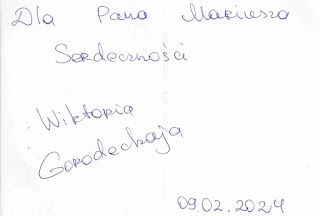 Dla Pana Mariusza
Serdeczności
Wiktoria
Gorodeckaja
09.02.2024